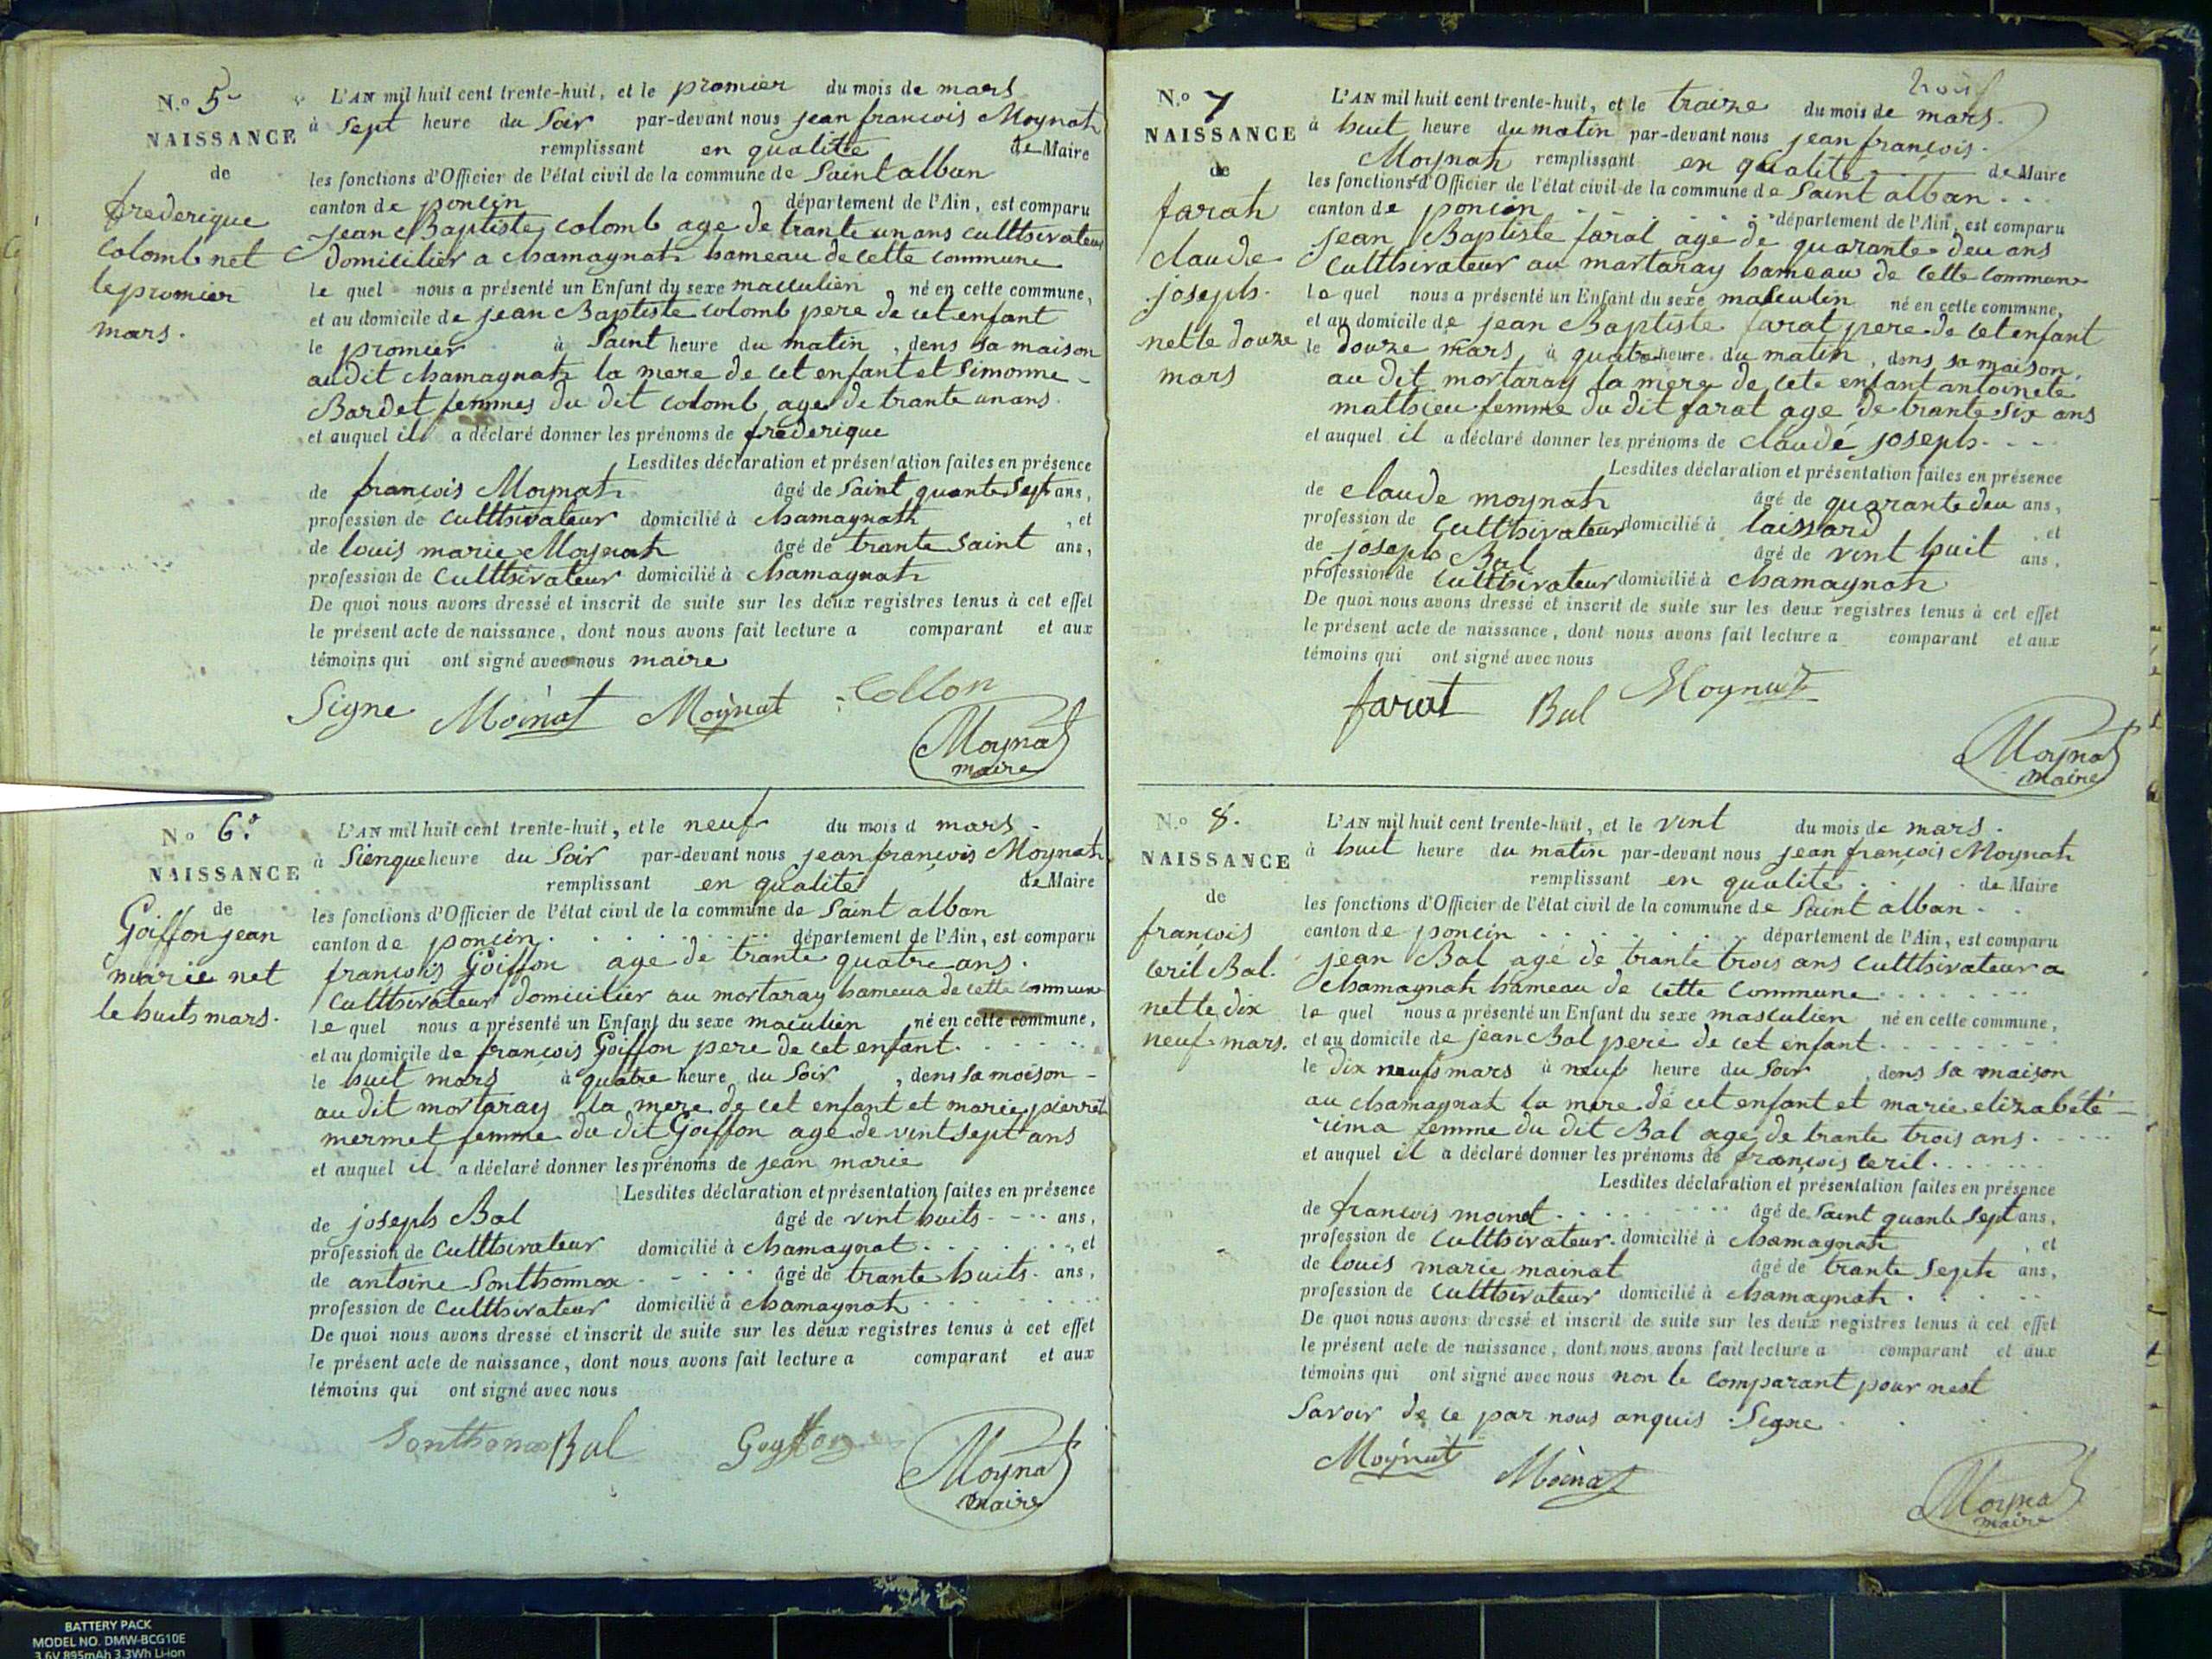 N.o 5
NAISSANCE
de
frederique
colomb net
le promier
mars.
L'AN mil huit cent trente-huit, et le promier du mois de mars
à Sept heure du Soir par-devant nous jean francois Moynat
remplissant en qualité de Maire
les fonctions d'Officier de l'état civil de la commune de Saint alban
canton de poncin département de l'Ain, est comparu
jean Baptiste colomb age de trante un ans culthivateur
Domicilier a chamagnat hameau de cette commune
le quel nous a présenté un Enfant du sexe masculien, né en cette commune,
et au domicile de jean Baptiste colomb pere de cet enfant
le promier à Saint heure du matin, dens sa maison
audit chamagnat la mere de cet enfant et Simonne
Bardet femmes du dit colomb age de trante un ans
et auquel il a déclaré donner les prénoms de frederique
Lesdites déclaration et présentation faites en présence
de françois Moynat âgé de Saint quante Sept ans,
profession de culthivateur domicilié à chamagnath, et
de louis marie Moynat âgé de trante Saint ans,
profession de culthivateur domicilié à chamagnat
De quoi nous avons dressé et inscrit de suite sur les deux registres tenus à cet effet
le présent acte de naissance, dont nous avons fait lecture a comparant et aux
témoins qui ont signé avec nous maire
Signe Moinat Moynat Collon
Moynat
maire
N.o 6.o
NAISSANCE
de
Goiffon jean
marie net
le huits mars.
L'AN mil huit cent trente-huit, et le neuf du mois d mars
à Sienque heure du Soir par-devant nous jean françois Moynat
remplissant en qualité de Maire
les fonctions d'Officier de l'état civil de la commune de Saint alban
canton de poncin département de l'Ain, est comparu
francois Goiffon age de trante quatre ans.
Culthivateur domicilier au mortaray hameua de cette commune
le quel nous a présenté un Enfant du sexe maculien né en cette commune,
et au domicile de francois Goiffon pere de cet enfant
le huit mars à quatre heure du Soir, dens sa moison
au dit mortaray la mere de cet enfant et marie pierrot
mermet femme du dit Goiffon age de vint sept ans
et auquel il a déclaré donner les prénoms de jean marie
Lesdites déclaration et présentation faites en présence
de joseph Bal âgé de vint huits ans,
profession de Culthivateur domicilié à chamagnat, et
de antoine Sonthonnax âgé de trante huits ans,
profession de Culthivateur domicilié à chamagnat
De quoi nous avons dressé et inscrit de suite sur les deux registres tenus à cet effet
le présent acte de naissance, dont nous avons fait lecture a comparant et aux
témoins qui ont signé avec nous
Sonthonax Bal Goyffon
Moynat
maire
N.o 7
NAISSANCE
de
farat
claude
joseph.
net le douze
mars
L'AN mil huit cent trente-huit, et le traize du mois de mars.
à huit heure du matin par-devant nous jean françois.
Moynat remplissant en qualité de Maire
les fonctions d'Officier de l'état civil de la commune de Saint alban
canton de poncin département de l'Ain, est comparu
jean Baptiste farat age de quarante deu ans
Culthivateur au martaray hameau de cette commune
le quel nous a présenté un Enfant du sexe masculin né en cette commune,
et au domicile de jean Baptiste farat pere de cet enfant
le douze mars à quatre heure du matin, dens sa maison,
au dit mortaray la mere de cete enfant antoinete
mathieu femme du dit farat age de trante Six ans
et auquel il a déclaré donner les prénoms de claude joseph
Lesdites déclaration et présentation faites en présence
de claude moynat âgé de quarante deu ans,
profession de Culthivateur domicilié à laissard, et
de joseph Bal âgé de vint huit ans,
profession de Culthivateur domicilié à chamagnat
De quoi nous avons dressé et inscrit de suite sur les deux registres tenus à cet effet
le présent acte de naissance, dont nous avons fait lecture a comparant et aux
témoins qui ont signé avec nous
farat Bal Moynat
Moynat
maire
N.o 8.
NAISSANCE
de
françois
ceril Bal.
net le dix
neuf mars.
L'AN mil huit cent trente-huit, et le vint du mois de mars.
à huit heure du matin par-devant nous jean françois Moynat
remplissant en qualité de Maire
les fonctions d'Officier de l'état civil de la commune de Saint alban
canton de poncin département de l'Ain, est comparu
jean Bal agé de trante trois ans Culthivateur a
chamagnat hameau de cette commune
le quel nous a présenté un Enfant du sexe masculien né en cette commune,
et au domicile de jean Bal pere de cet enfant
le dix neufs mars à neuf heure du Soir, dens sa maison
au chamagnat la mere de cet enfant et marie elizabété
cima femme du dit Bal age de trante trois ans
et auquel il a déclaré donner les prénoms de françois ceril
Lesdites déclaration et présentation faites en présence
de francois moinat âgé de Saint quante Sept ans,
profession de Culthivateur domicilié à chamagnat, et
de louis marie mainat âgé de trante Septe ans,
profession de Culthivateur domicilié à chamagnat
De quoi nous avons dressé et inscrit de suite sur les deux registres tenus à cet effet
le présent acte de naissance, dont nous avons fait lecture a comparant et aux
témoins qui ont signé avec nous non le comparant pour nest
Savoir de ce par nous anquis Signe
Moynat Moinat
Moynat
maire
BATTERY PACK
MODEL NO. DMW-BCG10E
3.6V 895mAh 3.3Wh Li-ion